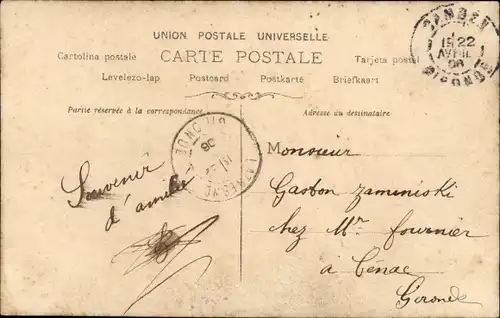 UNION POSTALE UNIVERSELLE
Cartolina postale CARTE POSTALE Tarjeta postal
Levelezo-lap Postcard Postkarte Briefkaart
Partie réservée à la correspondance
Adresse du destinataire
22
AVRIL
GIRONDE
GIRONDE
Souvenir
d'amitié
Monsieur
Gaston Zaminiski
chez Mr Fournier
à Cénac
Gironde